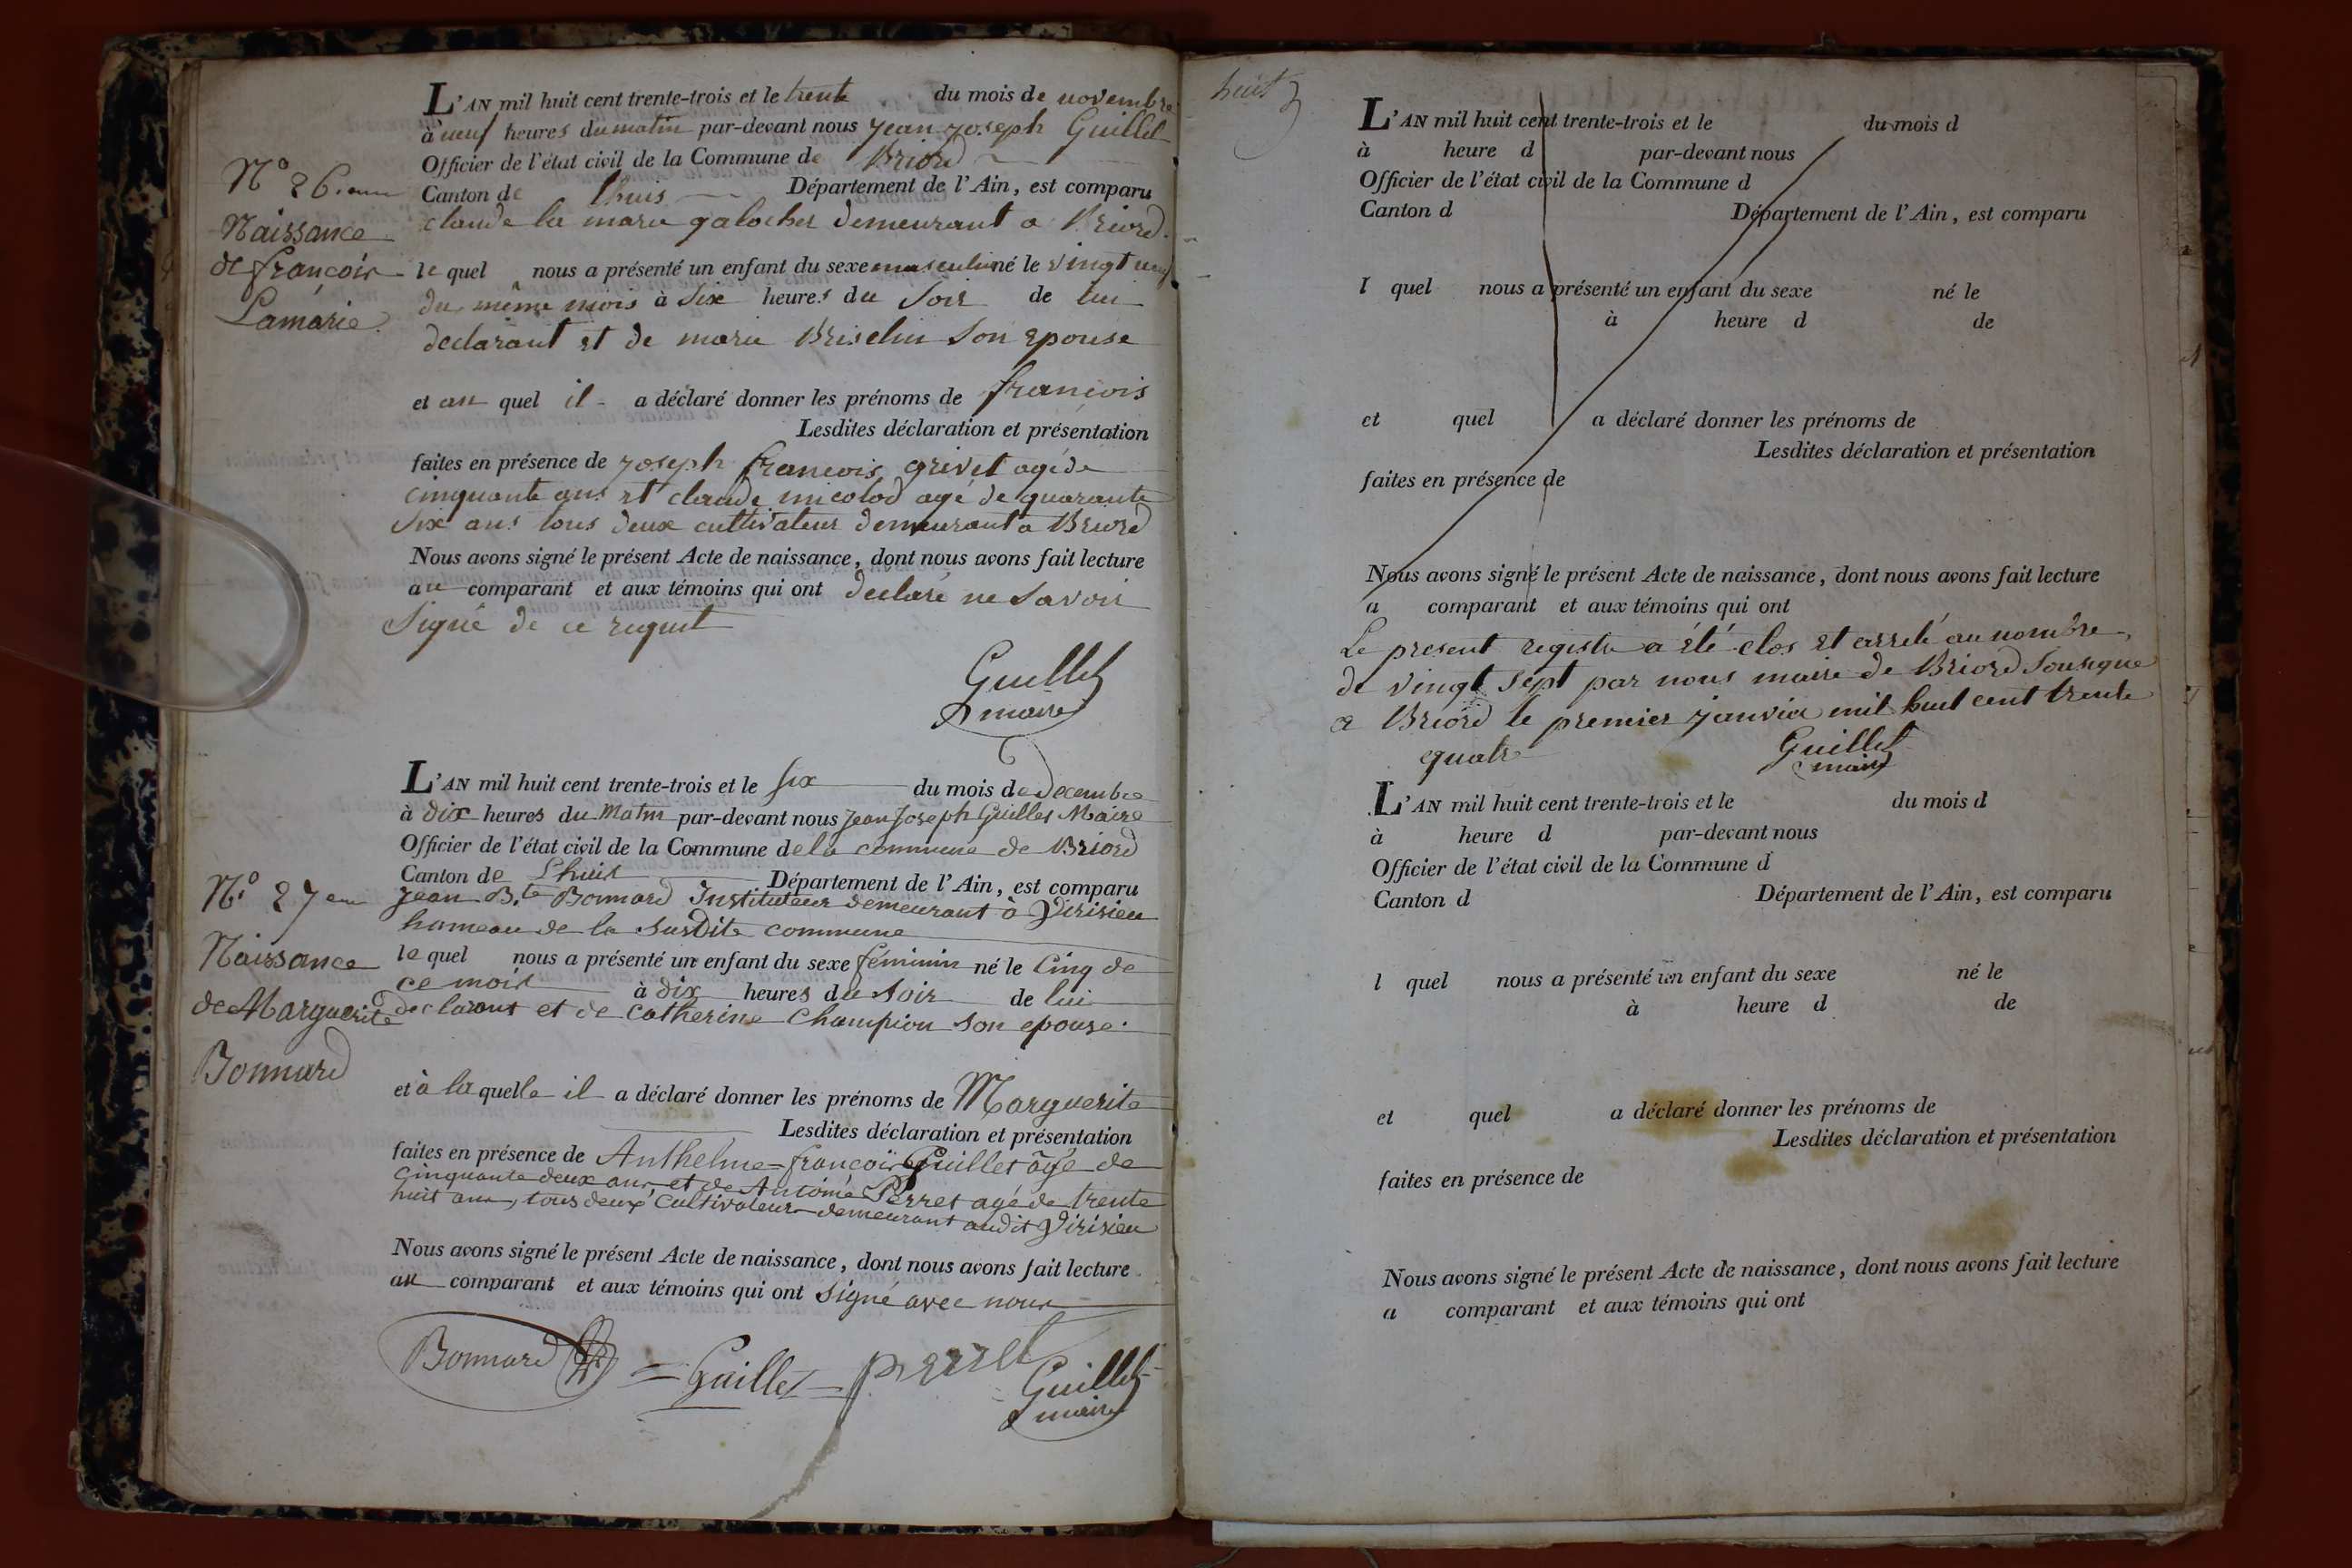 L'AN mil huit cent trente-trois et le trente du mois de novembre
à neuf heures du matin par-devant nous jean joseph Guillet
Officier de l'état civil de la Commune de Briord
Canton de Lhuis Département de l'Ain, est comparu
claude la marie galocher demeurant a Briord.
le quel nous a présenté un enfant du sexe masculin né le vingt neuf
du même mois à Six heures du Soir de lui
declarant et de marie Briselin Son epouse
et au quel il a déclaré donner les prénoms de françois
Lesdites déclaration et présentation
faites en présence de joseph francois grivet agé de
cinquante ans et claude micolod agé de quarante
Six ans tous deux cultivateur demeurant a Briord
Nous avons signé le présent Acte de naissance, dont nous avons fait lecture
au comparant et aux témoins qui ont declaré ne Savoir
Signé de ce requit
Guillet
maire
N° 26.eme
Naissance
de françois
Lamarie.
L'AN mil huit cent trente-trois et le six du mois de Decembre
à dix heures du Matin par-devant nous jean joseph Guillet Maire
Officier de l'état civil de la Commune de la commune de Briord
Canton de Lhuis Département de l'Ain, est comparu
jean B.te Bonnard Instituteur demeurant à Vérizieu
hameau de la susdite commune
le quel nous a présenté un enfant du sexe féminin né le Cinq de
ce mois à dix heures du soir de lui
declarant et de catherine Champion son epouse.
et à la quelle il a déclaré donner les prénoms de Marguerite
Lesdites déclaration et présentation
faites en présence de Anthelme=françois Guillet âgé de
Cinquante deux ans et de Antoine Perret agé de trente
huit ans, tous deux cultivateurs demeurant audit Vérizieu
Nous avons signé le présent Acte de naissance, dont nous avons fait lecture
au comparant et aux témoins qui ont signé avec nous
Bonnard = Guillet = perret
Guillet
maire
N.° 27 eme
Naissance
de Marguerite
Bonnard
huit
L'AN mil huit cent trente-trois et le du mois d
à heure d par-devant nous
Officier de l'état civil de la Commune d
Canton d Département de l'Ain, est comparu
l quel nous a présenté un enfant du sexe né le
à heure d de
et quel a déclaré donner les prénoms de
Lesdites déclaration et présentation
faites en présence de
Nous avons signé le présent Acte de naissance, dont nous avons fait lecture
a comparant et aux témoins qui ont
Le present registre a été clos et arreté au nombre
de vingt sept par nous maire de Briord Sousigné
a Briord le premier janvier mil huit cent trente
quatre
Guillet
maire
L'AN mil huit cent trente-trois et le du mois d
à heure d par-devant nous
Officier de l'état civil de la Commune d
Canton d Département de l'Ain, est comparu
l quel nous a présenté un enfant du sexe né le
à heure d de
et quel a déclaré donner les prénoms de
Lesdites déclaration et présentation
faites en présence de
Nous avons signé le présent Acte de naissance, dont nous avons fait lecture
a comparant et aux témoins qui ont